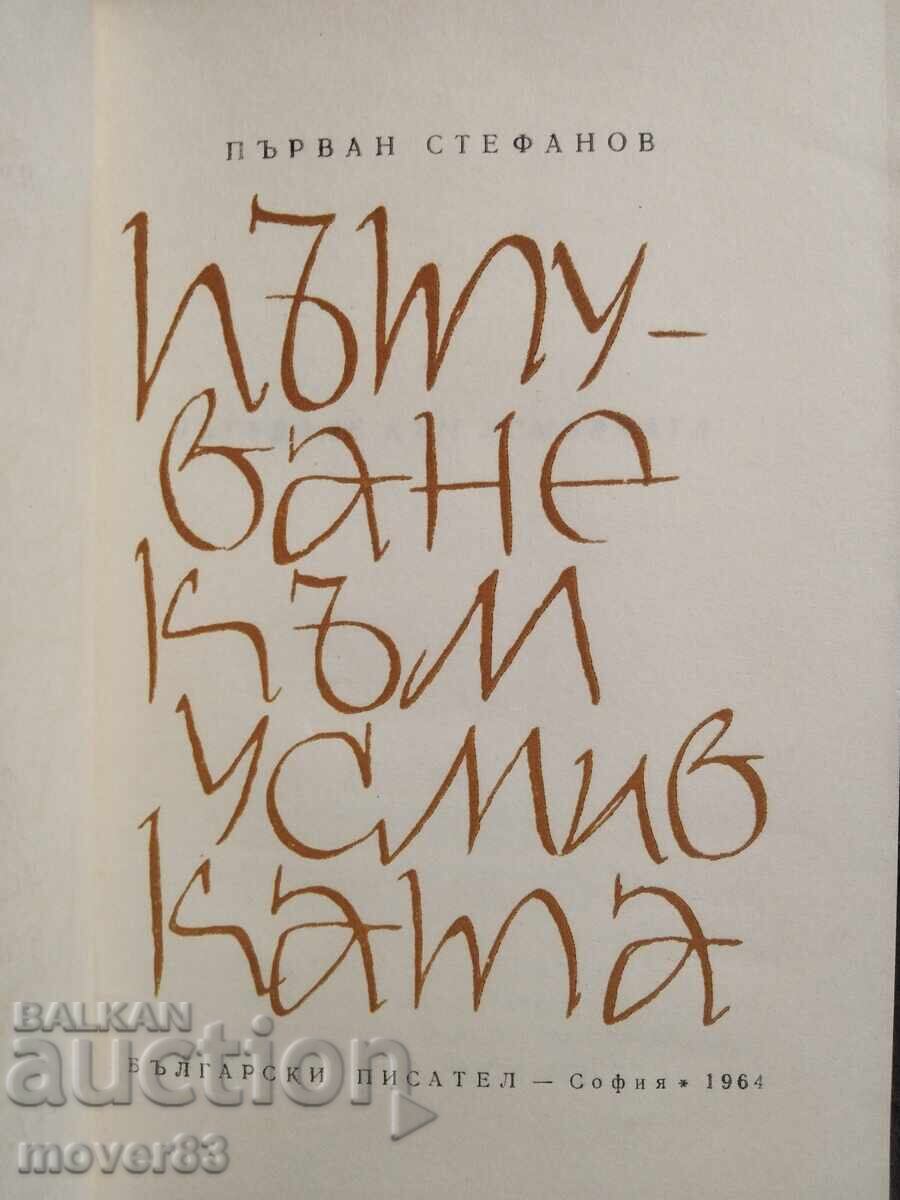 ПЪРВАН СТЕФАНОВ
ПЪТУ-
ВАНЕ
КЪМ
УСМИВ
КАТА
БЪЛГАРСКИ ПИСАТЕЛ — София * 1964
BALKAN
auction
mover83